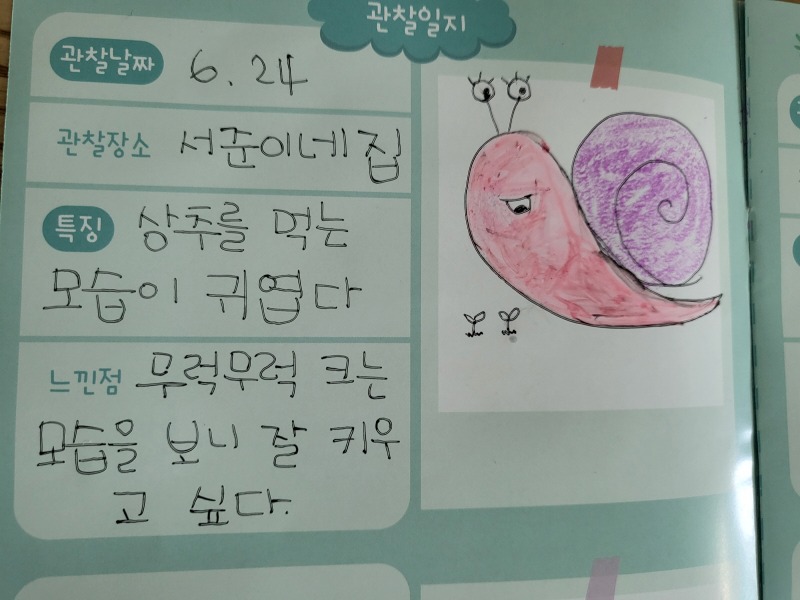 관찰일지
관찰날짜 6. 24
관찰장소 서준이네 집
특징 상추를 먹는
모습이 귀엽다
느낀점 무럭무럭 크는
모습을 보니 잘 키우
고 싶다.